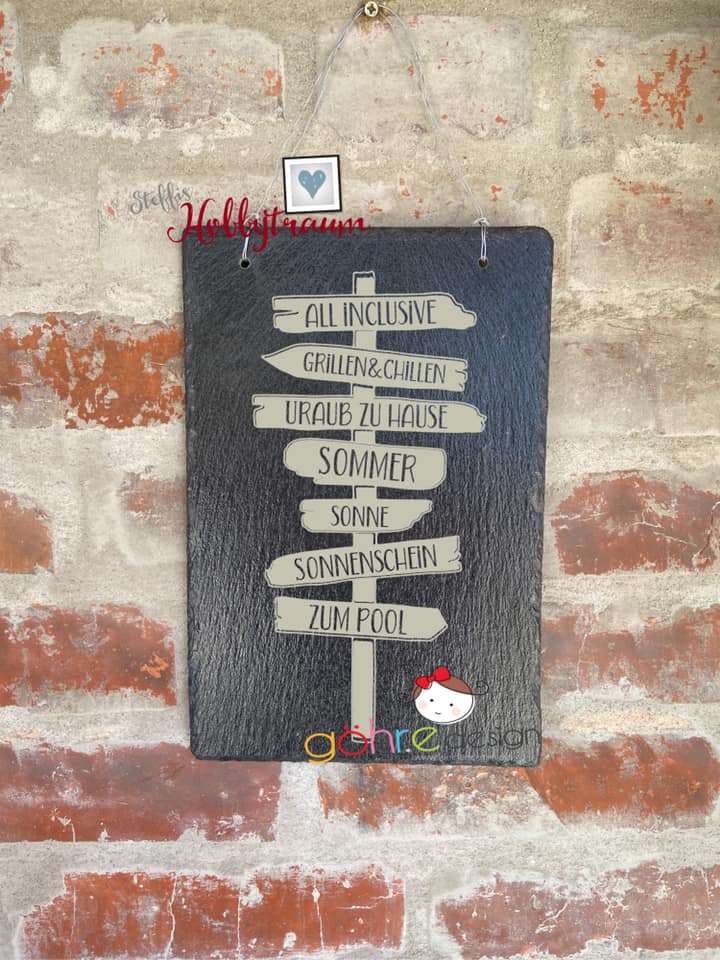 Steffis
Hobbytraum
ALL iNCLUSIVE
GRILLEN&CHILLEN
URAUB ZU HAUSE
SOMMER
SONNE
SONNENSCHEIN
ZUM POOL
göhr.e design